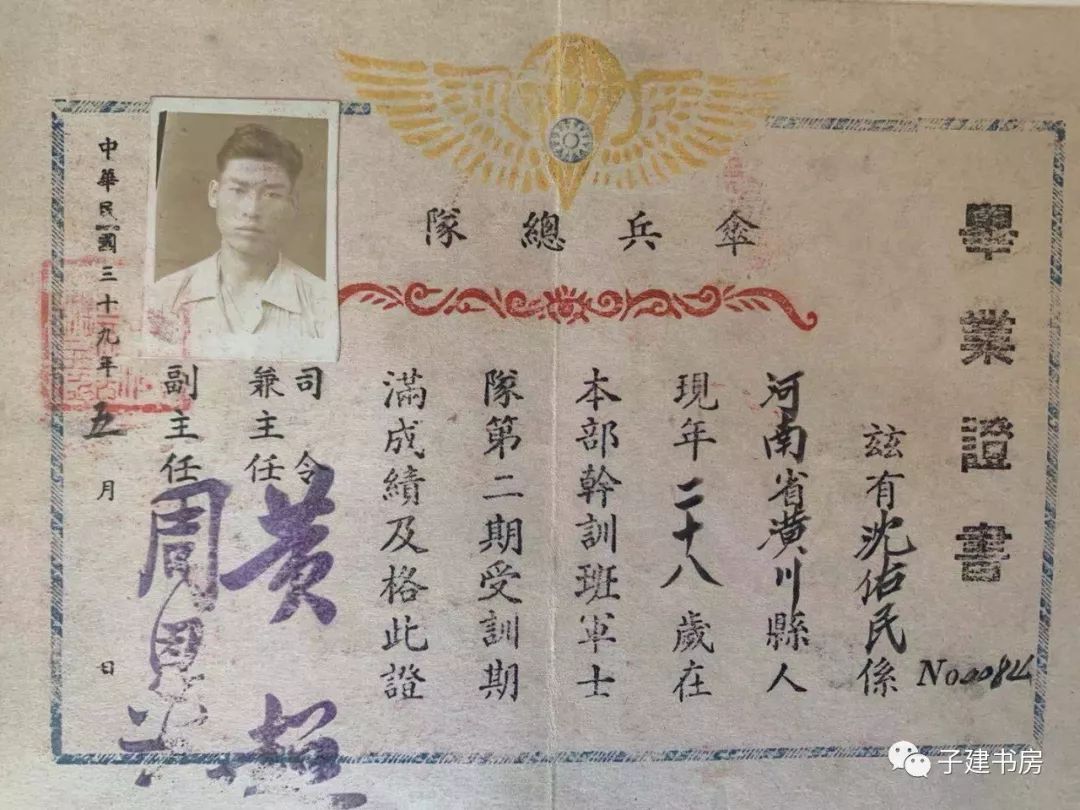 畢業證書
傘兵總隊
茲有沈佑民係
河南省潢川縣人
現年二十八歲在
本部幹訓班軍士
隊第二期受訓期
滿成績及格此證
司令
兼主任
黃超
副主任
周
中華民國三十九年五月 日
No 0084
子建书房